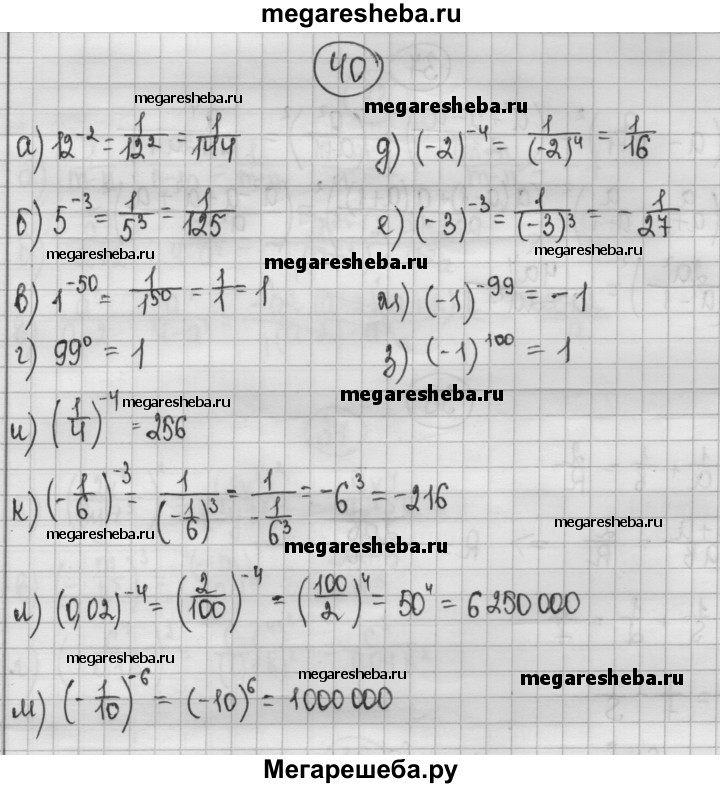 megaresheba.ru
40
megaresheba.ru
megaresheba.ru
а) 12⁻² = 1/12² = 1/144
д) (-2)⁻⁴ = 1/(-2)⁴ = 1/16
б) 5⁻³ = 1/5³ = 1/125
е) (-3)⁻³ = 1/(-3)³ = -1/27
megaresheba.ru
megaresheba.ru
megaresheba.ru
в) 1⁻⁵⁰ = 1/1⁵⁰ = 1/1 = 1
ж) (-1)⁻⁹⁹ = -1
г) 99⁰ = 1
з) (-1)¹⁰⁰ = 1
megaresheba.ru
megaresheba.ru
и) (1/4)⁻⁴ = 256
к) (-1/6)⁻³ = 1/(-1/6)³ = 1/(-1/6³) = -6³ = -216
megaresheba.ru
megaresheba.ru
megaresheba.ru
л) (0,02)⁻⁴ = (2/100)⁻⁴ = (100/2)⁴ = 50⁴ = 6250000
megaresheba.ru
megaresheba.ru
megaresheba.ru
м) (-1/10)⁻⁶ = (-10)⁶ = 1000000
Мегарешеба.ру